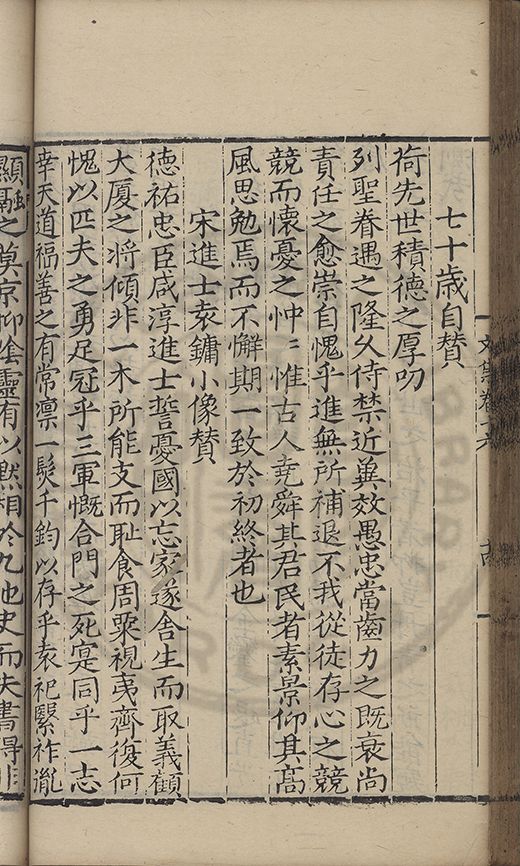 七十歲自贊
荷先世積德之厚叨
列聖眷遇之隆久侍禁近冀效愚忠當齒力之既衰尚
責任之愈崇自愧乎進無所補退不我從徒存心之競
競而懷憂之忡〻惟古人堯舜其君民者素景仰其高
風思勉焉而不懈期一致於初終者也
宋進士袁鏞小像贊
德祐忠臣咸淳進士誓憂國以忘家遂舍生而取義顧
大厦之將傾非一木所能支而耻食周粟視夷齊復何
愧以匹夫之勇足冠乎三軍慨合門之死寔同乎一志
幸天道福善之有常凛一髮千鈞以存乎袁祀緊祚胤
顯融之莫京仰英靈有以默相於九地史而失書得非
文集卷